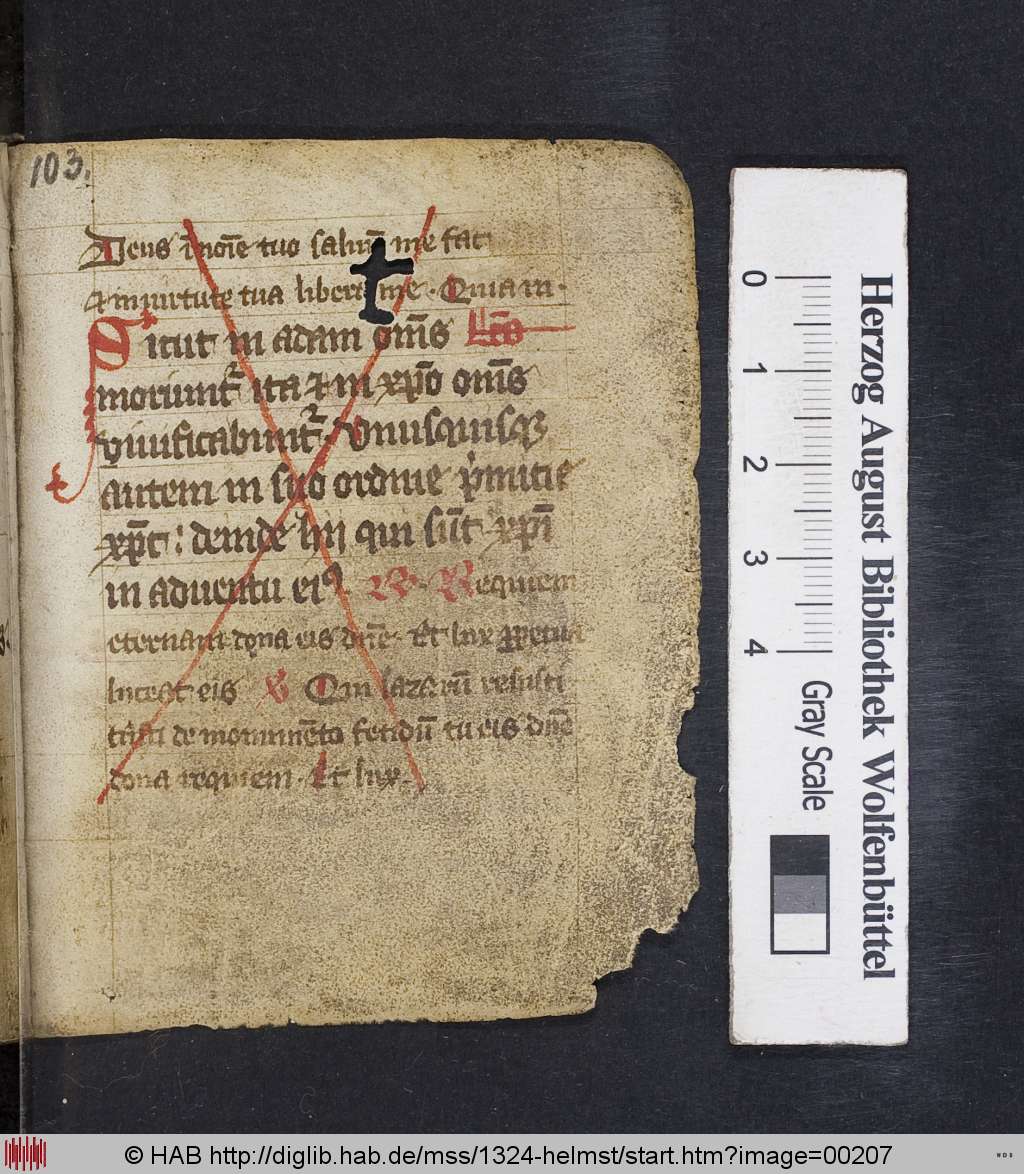 103.
Deus ī noīe tuo saluū me fac
⁊ in uirtute tua libera me · Quia in ·
t
Sicut in adam om̄s Lc̄o
moriunt᷑ ita ⁊ in xp̄o om̄s
viuificabunt᷑. Vnusquisqꝫ
autem in suo ordine pͥmitie
xp̄c : deinde hij qui sūt xp̄i
in aduentu eiꝰ. R. Requiem
eternam dona eis dn̄e · Et lux ꝑpetua
luceat eis ℣ Qui lazarū resusci
de monumēto fetidū tu eis dn̄e
dona requiem · Et lux ·
0 1 2 3 4
Gray Scale
Herzog August Bibliothek Wolfenbüttel
© HAB http://diglib.hab.de/mss/1324-helmst/start.htm?image=00207